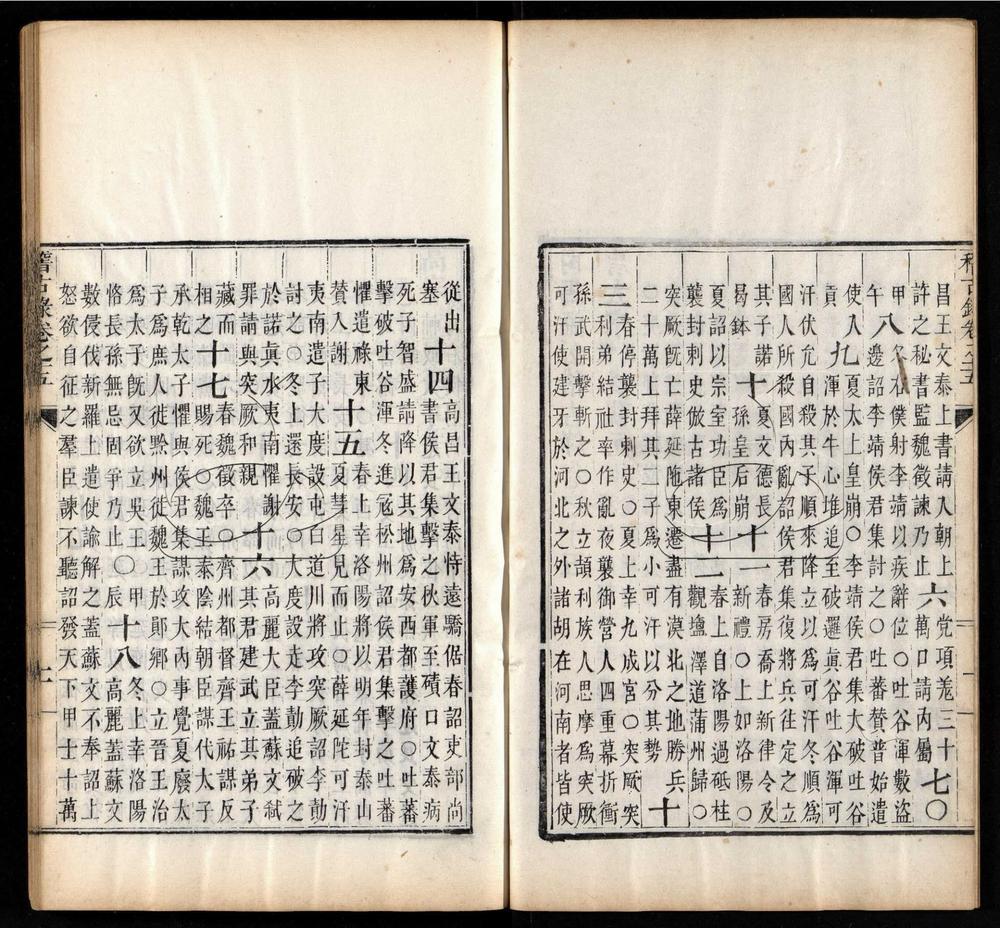 昌王文泰上書請入朝上許之秘書監魏徵諫乃止六党項羗三十萬口請内屬七〇
甲午八冬右僕射李靖以疾辭位〇吐谷渾數盜邊詔李靖侯君集討之〇吐蕃賛普始遣
使入貢九夏太上皇崩〇李靖侯君集大破吐谷渾於牛心堆追至破邏真谷吐谷渾可
汗伏允自殺其子順來降立以爲可汗冬順爲國人所殺國内亂詔侯君集復將兵往定之立
其子諾曷鉢十夏文德長孫皇后崩十一春房喬上新律令及新禮〇上如洛陽〇
夏詔以宗室功臣爲襲封刺史倣古諸侯十二春上自洛陽過砥柱觀鹽澤道蒲州歸〇
突厥旣亡薛延陁東遷盡有漠北之地勝兵二十萬上拜其二子爲小可汗以分其勢十
三春停襲封刺史〇夏上幸九成宮〇突厥突利弟結社率作亂夜襲御營人四重幕折衝
孫武開擊斬之〇秋立頡利族人思摩爲突厥可汗使建牙於河北之外諸胡在河南者皆使
從出塞十四高昌王文泰恃遠驕倨春詔吏部尚書侯君集擊之秋軍至磧口文泰病
死子智盛請降以其地爲安西都護府〇吐蕃擊破吐谷渾冬進冦松州詔侯君集擊之吐蕃
懼遣祿東賛入謝十五春上幸洛陽將以明年封泰山夏彗星見而止〇薛延陀可汗
夷南遣子大度設屯白道川將攻突厥詔李勣討之〇冬上還長安〇大度設走李勣追破之
於諾真水東南懼謝罪請與突厥和親十六高麗大臣蓋蘇文弑其君建武立其弟子
藏而相之十七春魏徵卒〇齊州都督齊王祐謀反賜死〇魏王泰陰結朝臣謀代太子
承乾太子懼與侯君集謀攻大内事覺夏廢太子爲庶人徙黔州徙魏王於鄖鄉〇立晉王治
爲太子旣又欲立吳王恪長孫無忌固爭乃止〇甲辰十八冬上幸洛陽高麗蓋蘇文
數侵伐新羅上遣使諭解之蓋蘇文不奉詔上怒欲自征之羣臣諫不聽詔發天下甲士十萬
稽古錄卷之十五